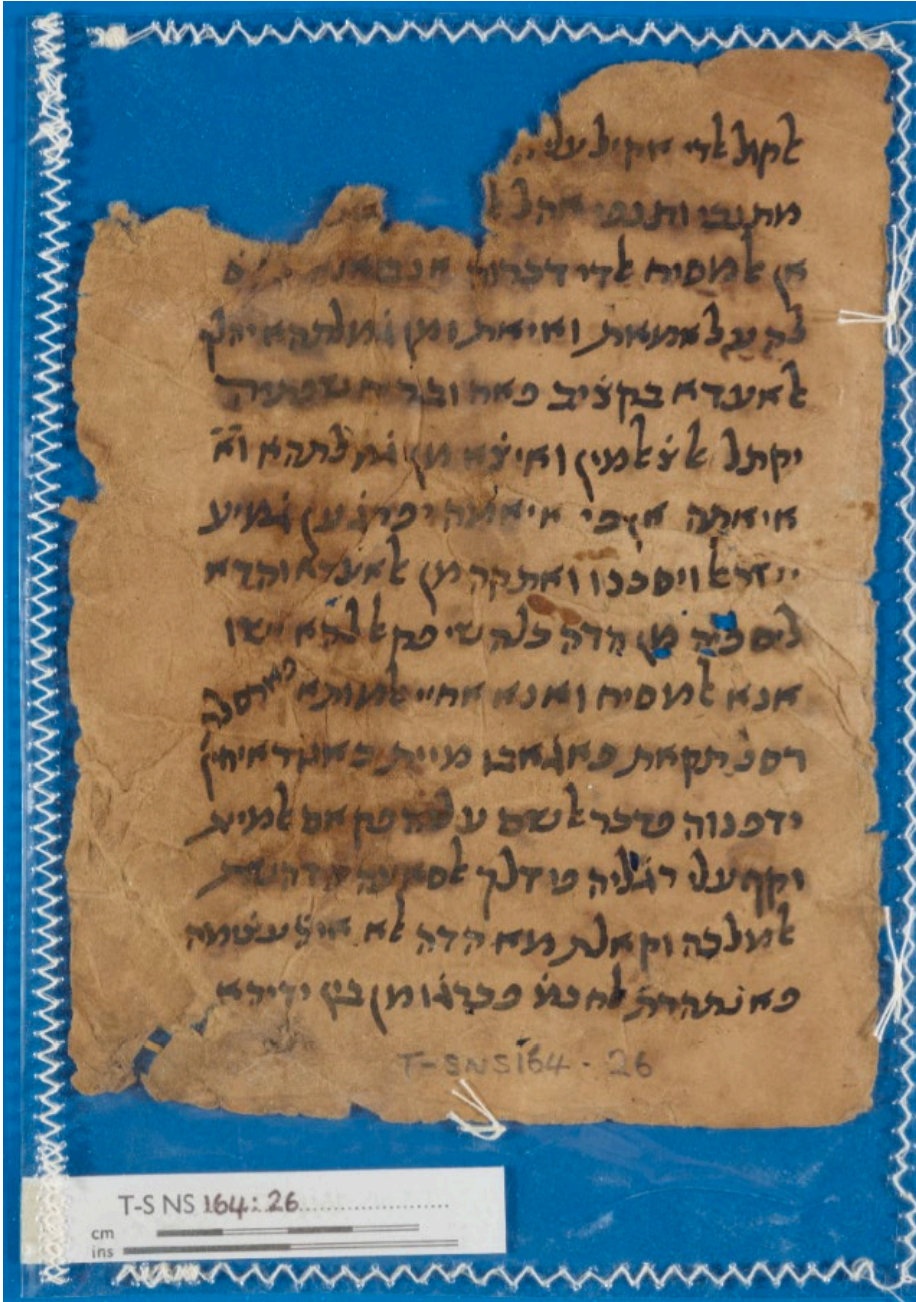 אקול אלדי אקול עליה
מתנבי ותנבי
אן אלמסיח אלדי דכרוה אנביאנא
לה עלאמאת ואיאת ומן גמלתהא יהלך
אלאעדא בקציב פאה וברוח שפתיה
יקתל אלצאלמין ואיצא מן גמלתהא וא
איאתה אן פי איאמה יפרג ען גמיע
ישראל ויסכנו ואתקה מן אלאעדא והדא
ליס פיה מן הדה כלה שי פקאל להא ישו
אנא אלמסיח ואנא אחיי אלמותי פארסלה
רסל תקאת פאגאבו מיית פאגדא יחין
ידפנוה פדכר אלשם עליה פקאם אלמית
וקף עלי רגליה פי דלך אלסאעה פדהשת
אלמלכה וקאלת מא הדה אלא איה עצימה
פאנתהרת אלחכמ פכרגו מן בין ידיהא
T-SNS164-26
T-S NS 164:26
cm
ins